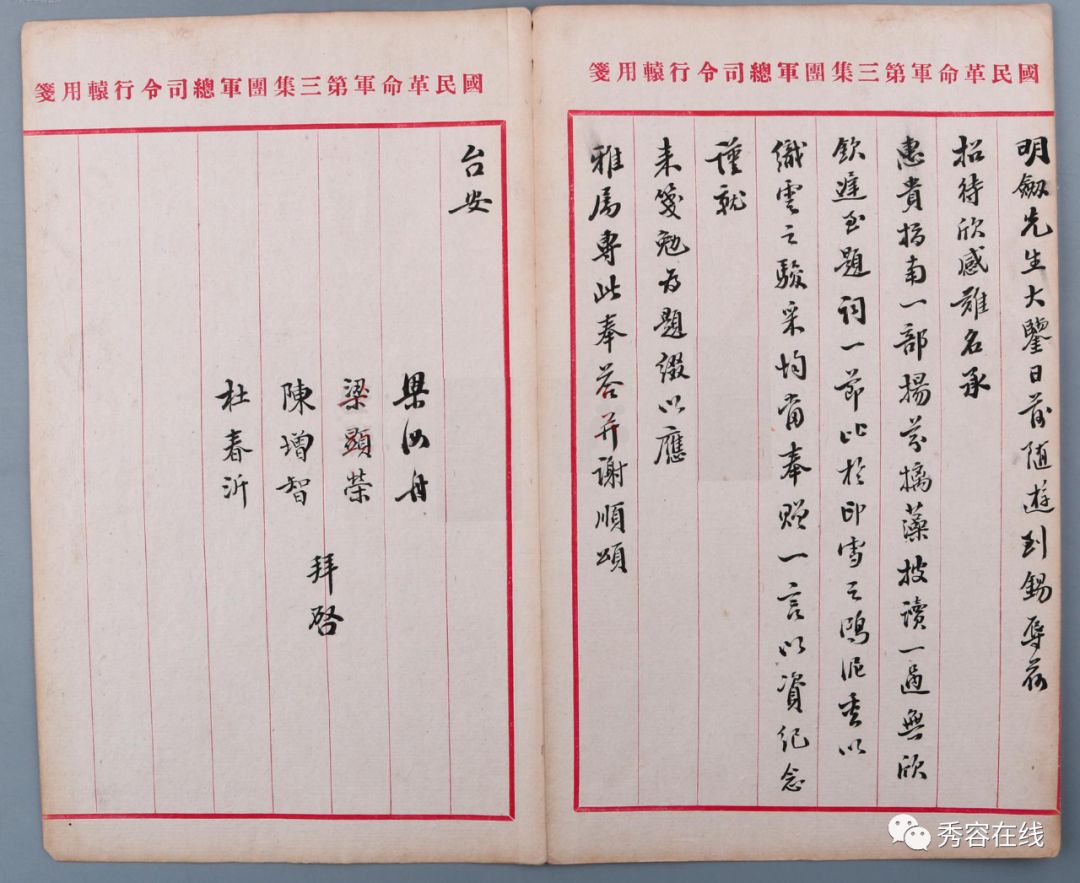 國民革命軍第三集團軍總司令行轅用箋
明劍先生大鑒日前隨遊到錫辱荷
招待欣感難名承
惠貴指南一部揚芬摛藻披讀一過無欣
欽遲至題詞一節比於印雪之鴻泥重以
織雲之駿采均當奉贈一言以資紀念
謹就
来箋勉為題綴以應
雅属專此奉荅并謝順頌
國民革命軍第三集團軍總司令行轅用箋
台安
梁汝舟
梁顯榮
陳增智
杜春沂
拜啓
秀容在线